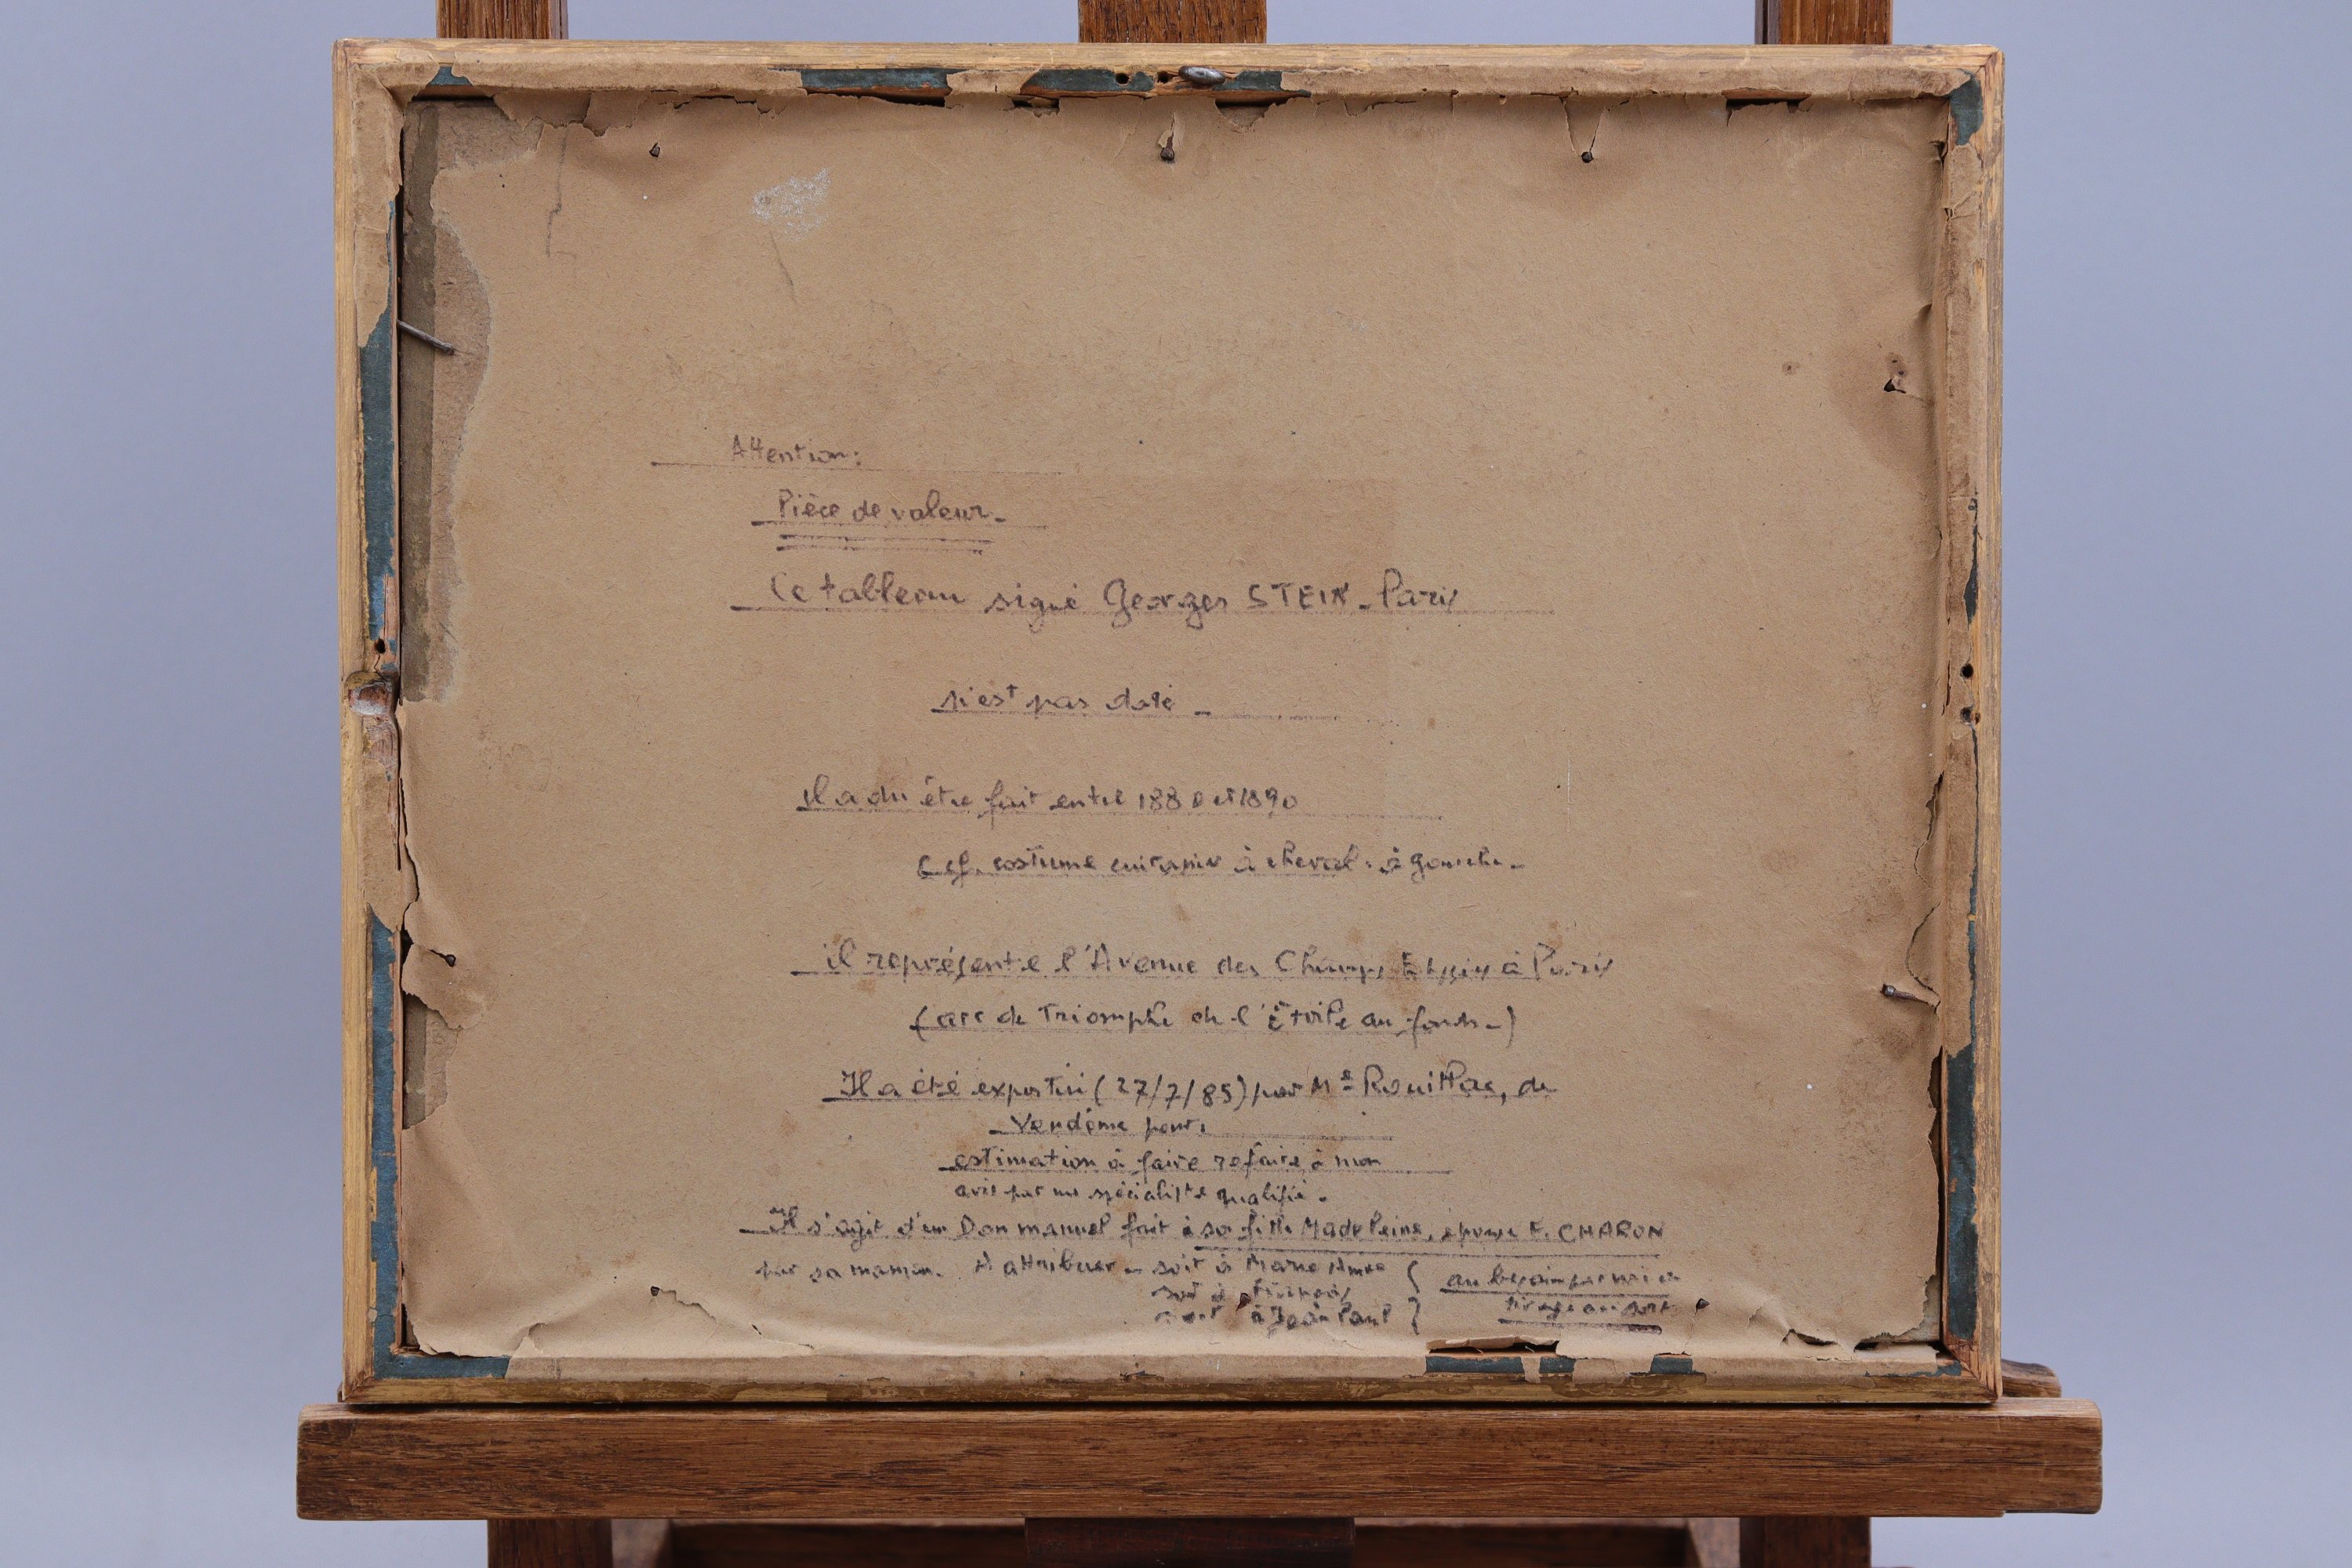 Attention:
Pièce de valeur_
Ce tableau signé Georges STEIN_Paris
n'est pas daté_
Il a du être fait entre 1880 et 1890
( cf. costume cuirassier à cheval. à gauche_
il représente l'Avenue des Champs Elysées à Paris
(arc de Triomphe de l'Étoile au fond_)
Il a été expertisé (27/7/85) par Me Rouillac, de
Vendôme pour:
estimation à faire refaire à mon
avis par un spécialiste qualifié_
Il s'agit d'un Don manuel fait à sa fille Madeleine, épouse F. CHARON
par sa maman. A attribuer_ soit à Marie Aimée
soit à
soit à Jean Paul
au besoin par
tirage au sort